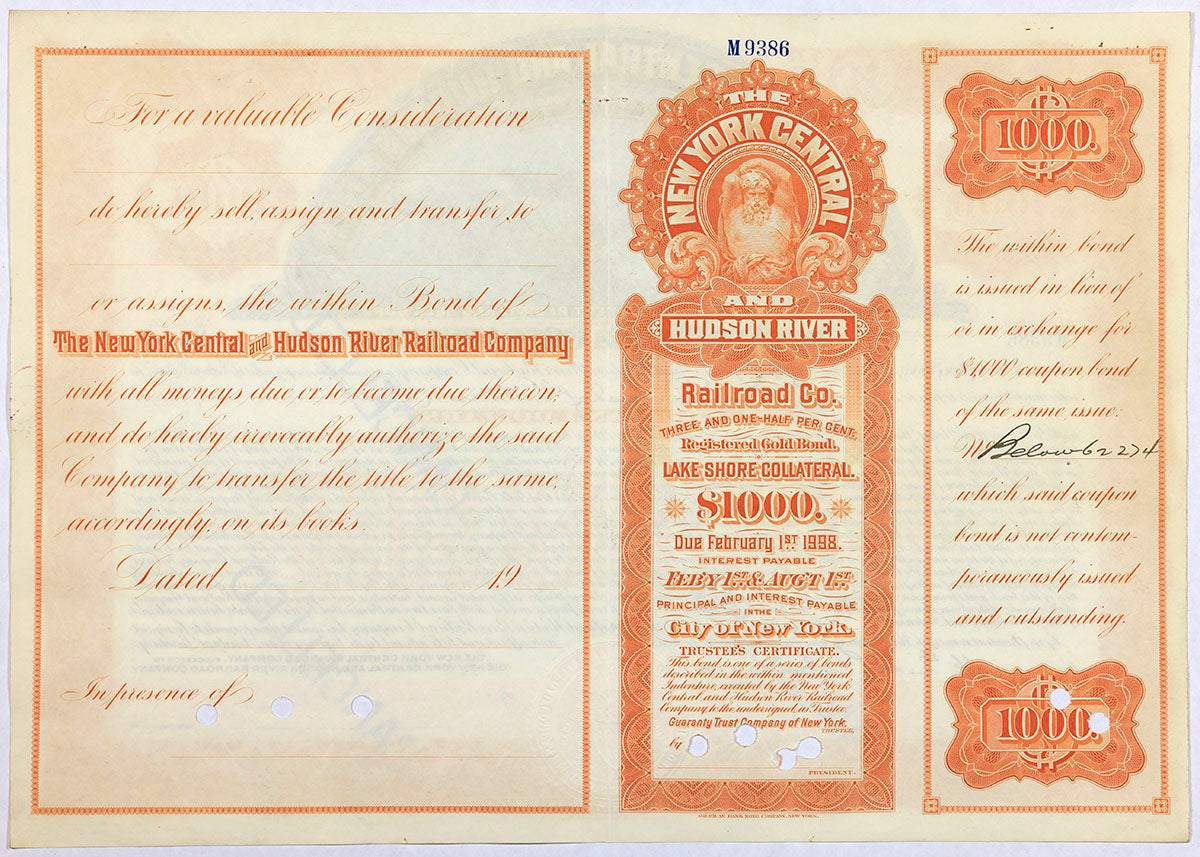 M9386
For a valuable Consideration
do hereby sell, assign and transfer, to
or assigns, the within Bond of
The New York Central and Hudson River Railroad Company
with all moneys due or to become due thereon;
and do hereby irrevocably authorize the said
Company to transfer the title to the same,
accordingly, on its books.
Dated 19
In presence of
THE
NEW YORK CENTRAL
AND
HUDSON RIVER
Railroad Co.
THREE AND ONE-HALF PER CENT.
Registered Gold Bond,
LAKE SHORE COLLATERAL.
$1000.
Due February 1ST 1998.
INTEREST PAYABLE
FEB'Y 1ST & AUG'T 1ST
PRINCIPAL AND INTEREST PAYABLE
IN THE
City of New York.
TRUSTEE'S CERTIFICATE.
This bond is one of a series of bonds
described in the within mentioned
Indenture, executed by the New York
Central and Hudson River Railroad
Company, to the undersigned, as Trustee.
Guaranty Trust Company of New York.
TRUSTEE,
by
PRESIDENT.
AMERICAN BANK NOTE COMPANY, NEW YORK.
1000.
The within bond
is issued in lieu of
or in exchange for
$1,000 coupon bond
of the same issue:
No Below 62274
which said coupon
bond is not contem-
poraneously issued
and outstanding.
1000.